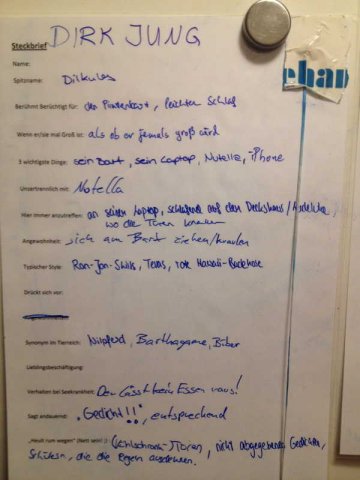 Steckbrief DIRK JUNG
Name:
Spitzname: Dirkules
Berühmt Berüchtigt für: den Piratenbart, leichten Schlaf
Wenn er/sie mal Groß ist: als ob er jemals groß wird
3 wichtigste Dinge: sein Bart, sein Laptop, Nutella, iPhone
Unzertrennlich mit: Nutella
Hier immer anzutreffen: an seinem Laptop, schlafend auf dem Deckshaus /
wo die Türen
Angewohnheit: sich am Bart ziehen/kraulen
Typischer Style: Ron-Jon-Shirts, Tevas, rote Hawaii-Badehose
Drückt sich vor:
Synonym im Tierreich: Nilpferd, Barthagame, Biber
Lieblingsbeschäftigung:
Verhalten bei Seekrankheit: Der lässt kein Essen raus!
Sagt andauernd: "Gedicht!!", entsprechend
„Heult rum wegen" (Nett sein) :) : Kühlschrank-Türen, nicht abgegebenen Gedichten,
Schülern, die die Regeln ausdehnen.
ehan